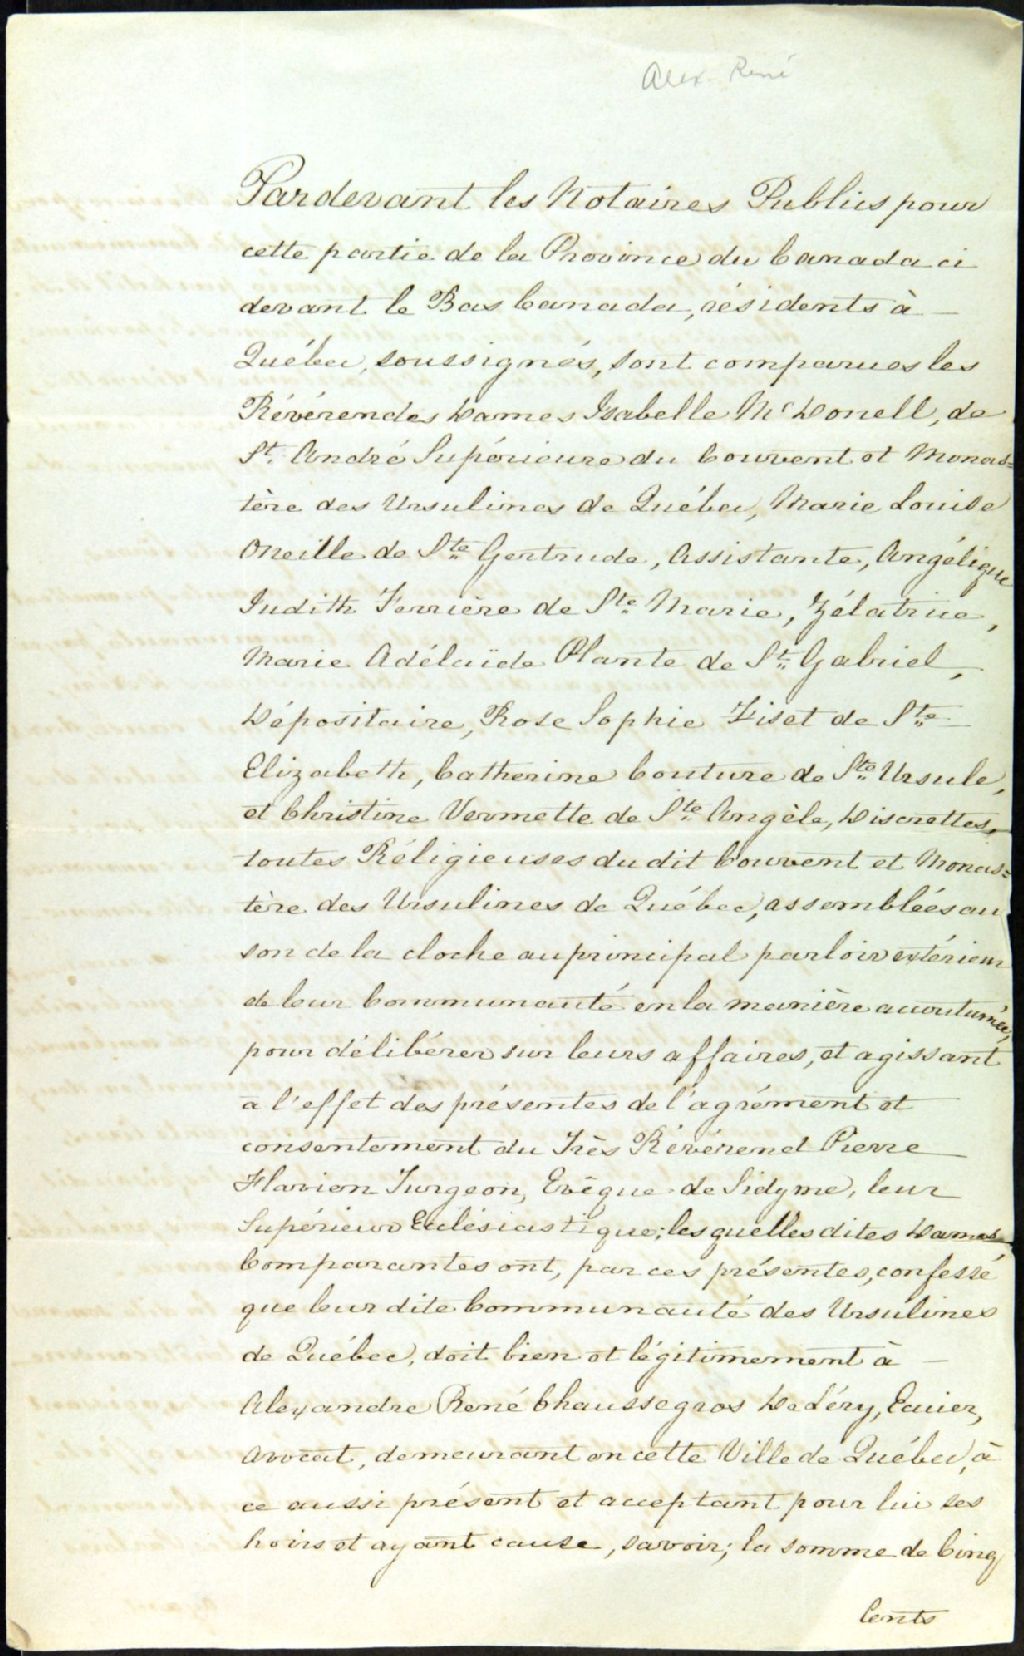 Alex René
Pardevant les Notaires Publics pour
cette partie de la Province du Canada ci
devant le Bas Canada, résidents à —
Québec, soussignés, sont comparues les
Révérendes Dames Isabelle McDonell, de
St. André Supérieure du Couvent et Monas=
tère des Ursulines de Québec, Marie Louise
Oneille de Ste Gertrude, Assistante, Angélique
Judith Ferrière de Ste Marie, Zélatrice,
Marie Adélaïde Plante de St. Gabriel,
Dépositaire, Rose Sophie Fiset de Ste
Elizabeth, Catherine Couture de Ste Ursule,
et Christine Vermette de Ste Angèle, Discrettes,
toutes Réligieuses du dit Couvent et Monas=
tère des Ursulines de Québec, assemblées au
son de la cloche au principal parloir extérieur
de leur Communauté en la manière accoutumée,
pour délibérer sur leurs affaires, et agissant
a l'effet des présentes de l'agrément et
consentement du Très Révérend Pierre
Flavien Turgeon, Evêque de Sidyme, leur
Supérieur Ecclésiastique; lesquelles dites Dames
Comparantes ont, par ces présentes, confessé
que leur dite Communauté des Ursulines
de Québec, doit bien et légitimement à —
Alexandre René Chaussegros DeLéry, Ecuier,
Avocat, demeurant en cette Ville de Québec, à
ce aussi présent et acceptant pour lui ses
hoirs et ayant cause, savoir; la somme de Cinq
Cents